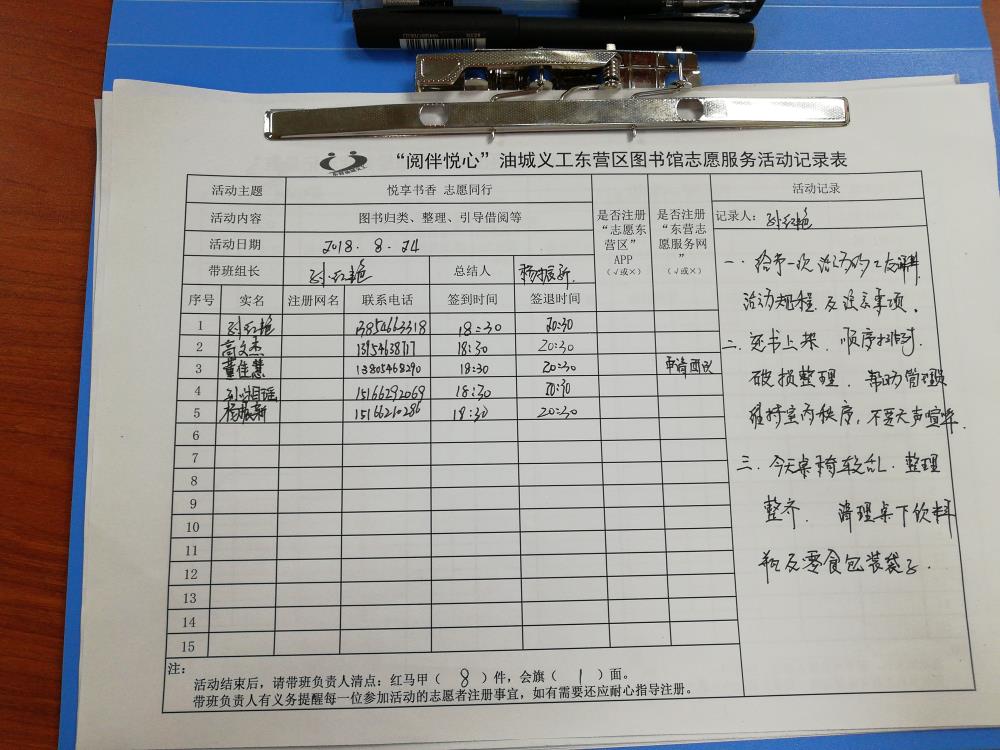 “阅伴悦心”油城义工东营区图书馆志愿服务活动记录表
活动主题 悦享书香 志愿同行
活动内容 图书归类、整理、引导借阅等
活动日期 2018.8.24
带班组长 孙红艳 总结人 杨振新
是否注册“志愿东营区”APP（√或×）
是否注册“东营志愿服务网”（√或×）
序号 实名 注册网名 联系电话 签到时间 签退时间
1 孙红艳 13854663318 18:30 20:30
2 高文杰 18:30 20:30
3 董佳慧 13805468290 18:30 20:30 申请
4 孙湘瑶 15166292069 18:30 20:30
5 杨振新 15166210286 18:30 20:30
6
7
8
9
10
11
12
13
14
15
活动记录
记录人：孙红艳
一.给第一次活动的
活动规程及注意事项.
二.还书上架.顺序排列.
破损整理.帮助管理员
维持室内秩序,不要大声喧哗.
三.今天桌椅较乱.整理
整齐.清理桌下饮料
瓶及零食包装袋子.
注：
活动结束后，请带班负责人清点：红马甲（8）件，会旗（1）面。
带班负责人有义务提醒每一位参加活动的志愿者注册事宜，如有需要还应耐心指导注册。